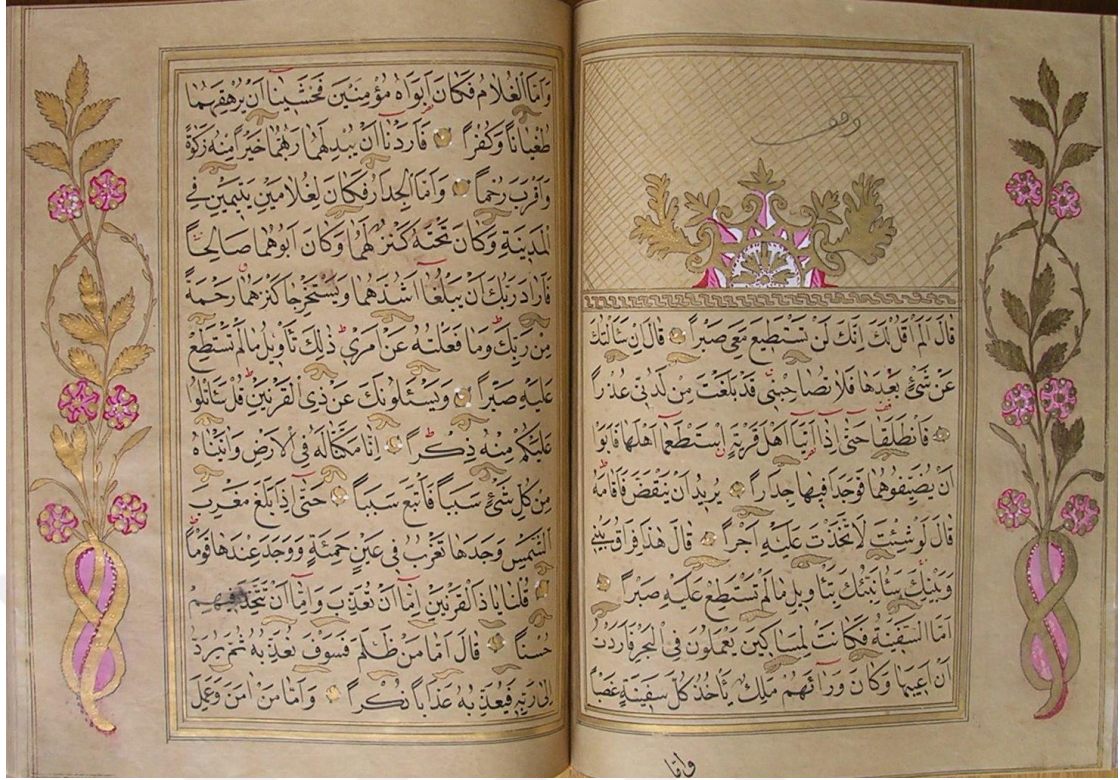 وقف
قال الم اقل لك انك لن تستطيع معى صبرا قال ان سالتك
عن شئ بعدها فلا تصاحبنى قد بلغت من لدنى عذرا
فانطلقا حتى اذا اتيا اهل قرية استطعما اهلها فابوا
ان يضيفوهما فوجدا فيها جدارا يريد ان ينقض فاقامه
قال لو شئت لاتخذت عليه اجرا قال هذا فراق بينى
وبينك سانبئك بتاويل مالم تستطع عليه صبرا
اما السفينة فكانت لمساكين يعملون فى البحر فاردت
ان اعيبها وكان ورائهم ملك ياخذ كل سفينة غصبا
واما
واما الغلام فكان ابواه مؤمنين فخشينا ان يرهقهما
طغيانا وكفرا فاردنا ان يبدلهما ربهما خيرا منه زكوة
واقرب رحما واما الجدار فكان لغلامين يتيمين فى
المدينة وكان تحته كنز لهما وكان ابوهما صالحا
فاراد ربك ان يبلغا اشدهما ويستخرجا كنزهما رحمة
من ربك وما فعلته عن امرى ذلك تاويل مالم تستطع
عليه صبرا ويسئلونك عن ذى القرنين قل ساتلوا
عليكم منه ذكرا انا مكنا له فى الارض واتيناه
من كل شئ سببا فاتبع سببا حتى اذا بلغ مغرب
الشمس وجدها تغرب فى عين حمئة ووجد عندها قوما
قلنا ياذا القرنين اما ان تعذب واما ان تتخذ فيهم
حسنا قال اما من ظلم فسوف نعذبه ثم يرد
الى ربه فيعذبه عذابا نكرا واما من امن وعمل